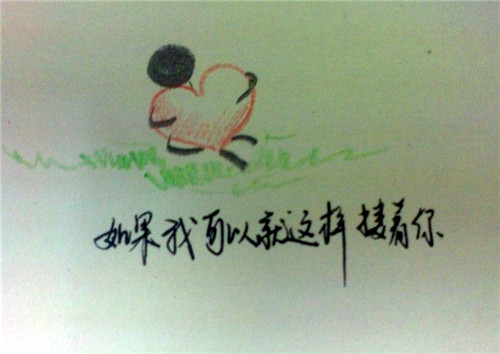 如果我可以就这样搂着你